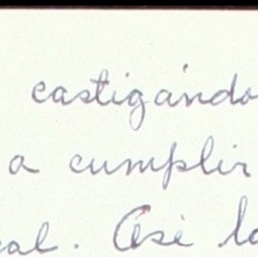 castigándo
a cumplir
al. Así lo